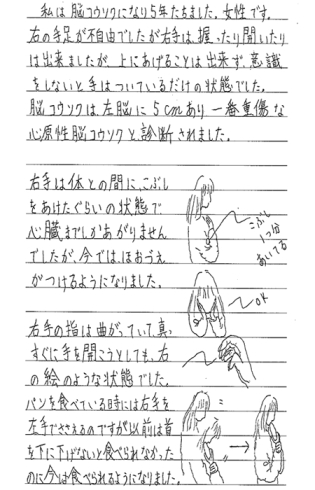 私は脳コウソクになり5年たちました。女性です。
右の手足が不自由でしたが右手は、握ったり開いたり
は出来ましたが、上にあげることは出来ず、意識
をしないと手はついているだけの状態でした。
脳コウソクは左脳に5cmあり一番重傷な
心原性脳コウソクと診断されました。
右手は体との間に、こぶし
をあけたぐらいの状態で
心臓までしかあがりません
でしたが、今では、ほおづえ
がつけるようになりました。
こぶし
1つ分
あいてる
OK
右手の指は曲がっていて、真っ
すぐに手を開こうとしても、右
の絵のような状態でした。
パンを食べている時には右手を
左手でささえるのですが以前は首
を下に下げないと食べられなかった
のに今は食べられるようになりました。